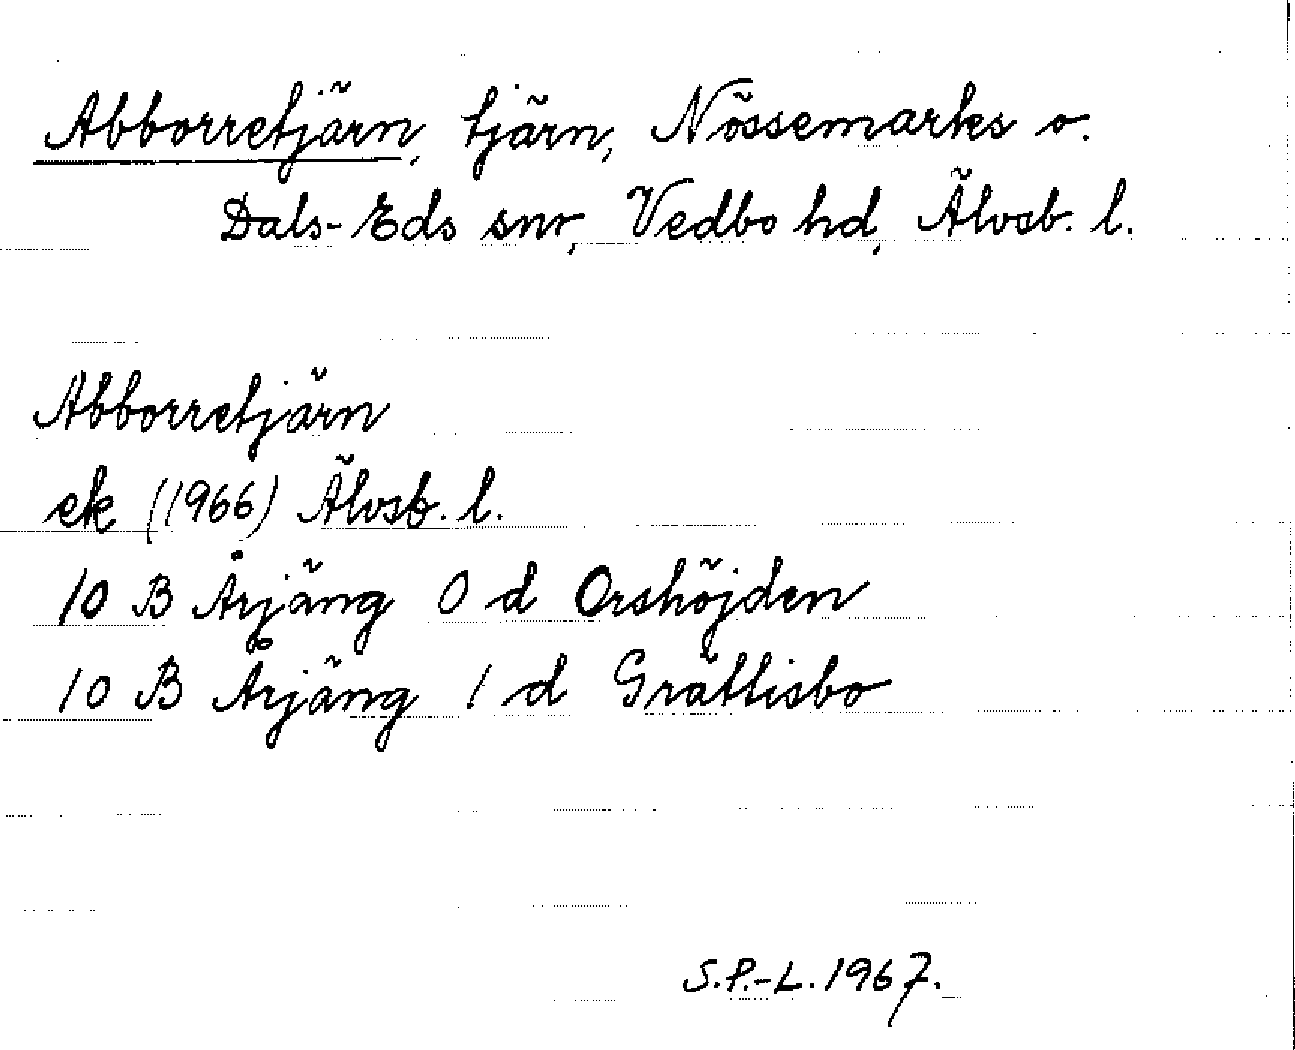 Abborretjärn, tjärn, Nössemarks o.
Dals-Eds snr, Vedbo hd, Älvsb. l.
Abborretjärn
ek (1966) Älvsb. l.
10 B Årjäng 0 d Orshöjden
10 B Årjäng 1 d Grättisbo
S.P.-L. 1967.